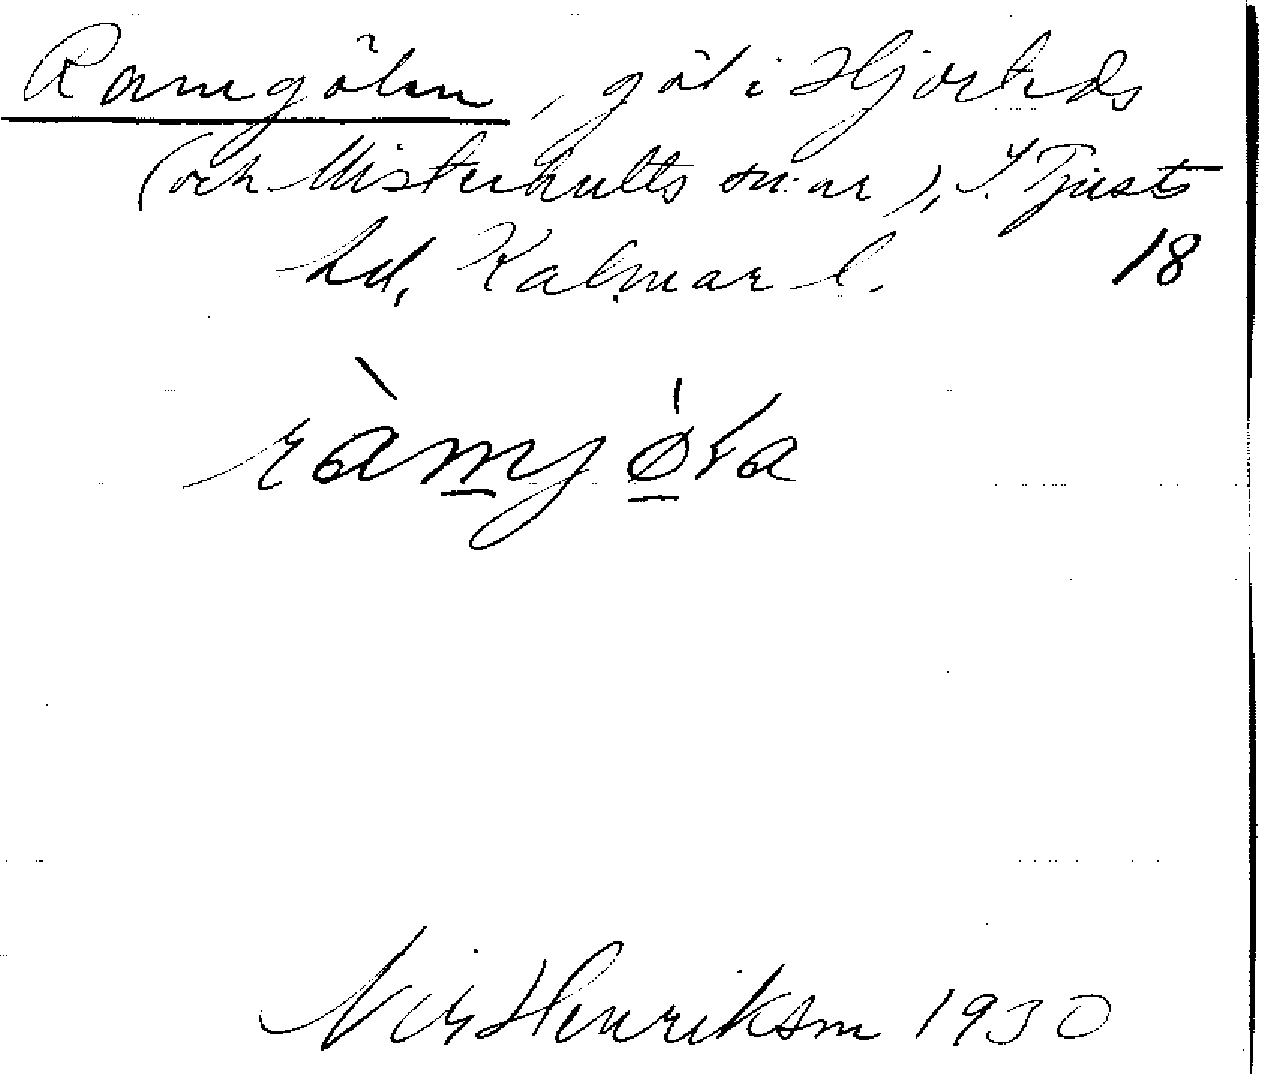 Ramgölen, göl i Hjorteds
(och Misterhults sn:ar), S. Tjusts
hd, Kalmar l. 18
ràmjöla
Nils Henrikson 1930